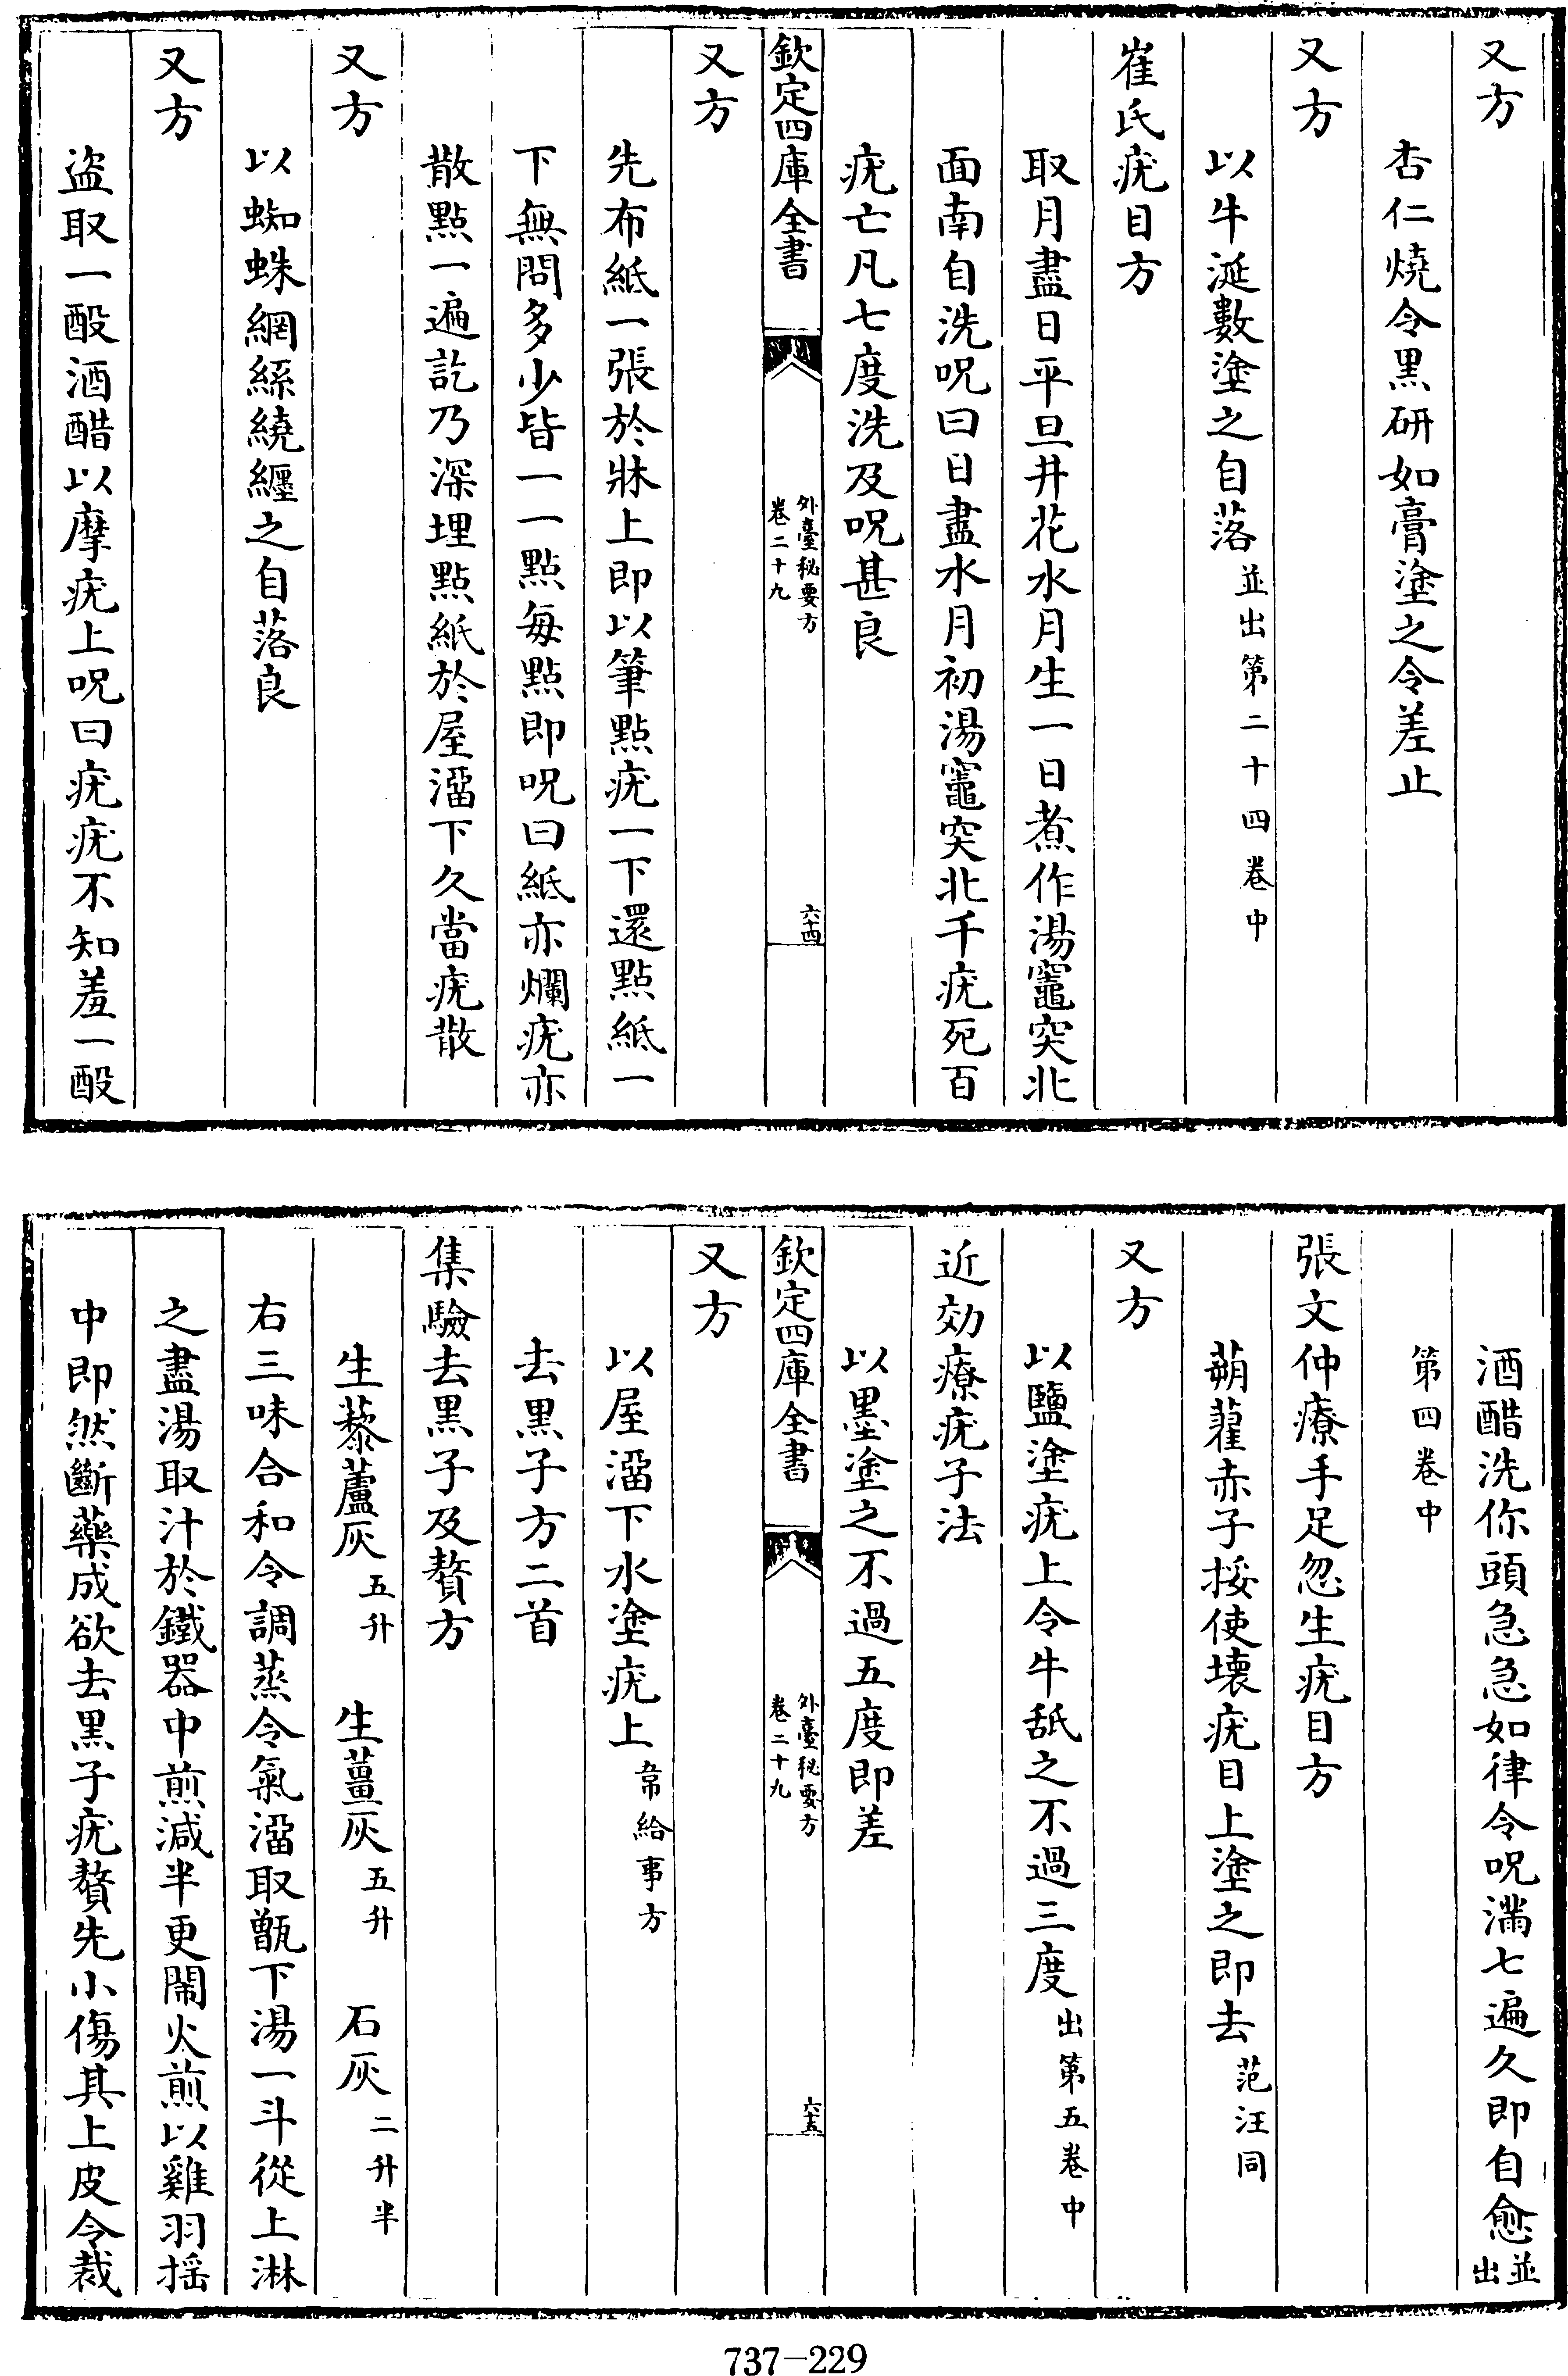 又方
杏仁燒令黒研如膏塗之令差止
又方
以牛涎數塗之自落並出第二十四卷中
崔氏疣目方
取月盡日平旦井花水月生一日煮作湯竈突北
面南自洗呪曰日盡水月初湯竈突北千疣死百
疣亡凡七度洗及呪甚良
欽定四庫全書
外臺秘要方
卷二十九
六十四
又方
先布紙一張於牀上即以筆點疣一下還點紙一
下無問多少皆一一點每點即呪曰紙亦爛疣亦
散點一遍訖乃深埋點紙於屋溜下久當疣散
又方
以蜘蛛網絲繞纏之自落良
又方
盗取一酘酒醋以摩疣上呪曰疣疣不知羞一酘
酒醋洗你頭急急如律令呪滿七遍久即自愈並出
第四卷中
張文仲療手足忽生疣目方
蒴藋赤子挼使壊疣目上塗之即去范汪同
又方
以鹽塗疣上令牛舐之不過三度出第五卷中
近効療疣子法
以墨塗之不過五度即差
欽定四庫全書
外臺秘要方
卷二十九
六十五
又方
以屋溜下水塗疣上帛給事方
去黒子方二首
集驗去黒子及贅方
生藜蘆灰五升 生薑灰五升 石灰二升半
右三味合和令調蒸令氣溜取甑下湯一斗從上淋
之盡湯取汁於鐵器中煎減半更閙火煎以雞羽揺
中即然斷藥成欲去黒子疣贅先小傷其上皮令裁
737-229